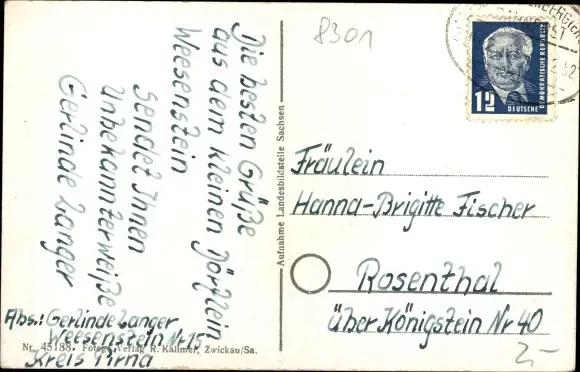 8301
Die besten Grüße
aus dem kleinen Dörflein
Weesenstein
sendet Ihnen
Unbekannterweiße
Gerlinde Langer
Abs.: Gerlinde Langer
Weesenstein Nr 15
Kreis Pirna
Nr. 45188 Fotogr. Verlag R. Kallmer, Zwickau/Sa.
Aufnahme Landesbildstelle Sachsen
12
DEUTSCHE
DEMOKRATISCHE REPUBLIK
Fräulein
Hanna-Brigitte Fischer
Rosenthal
über Königstein Nr 40
2,-